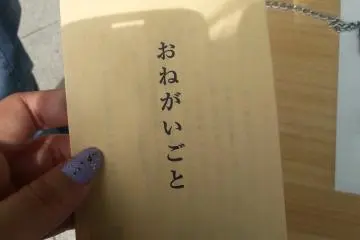 おねがいごと